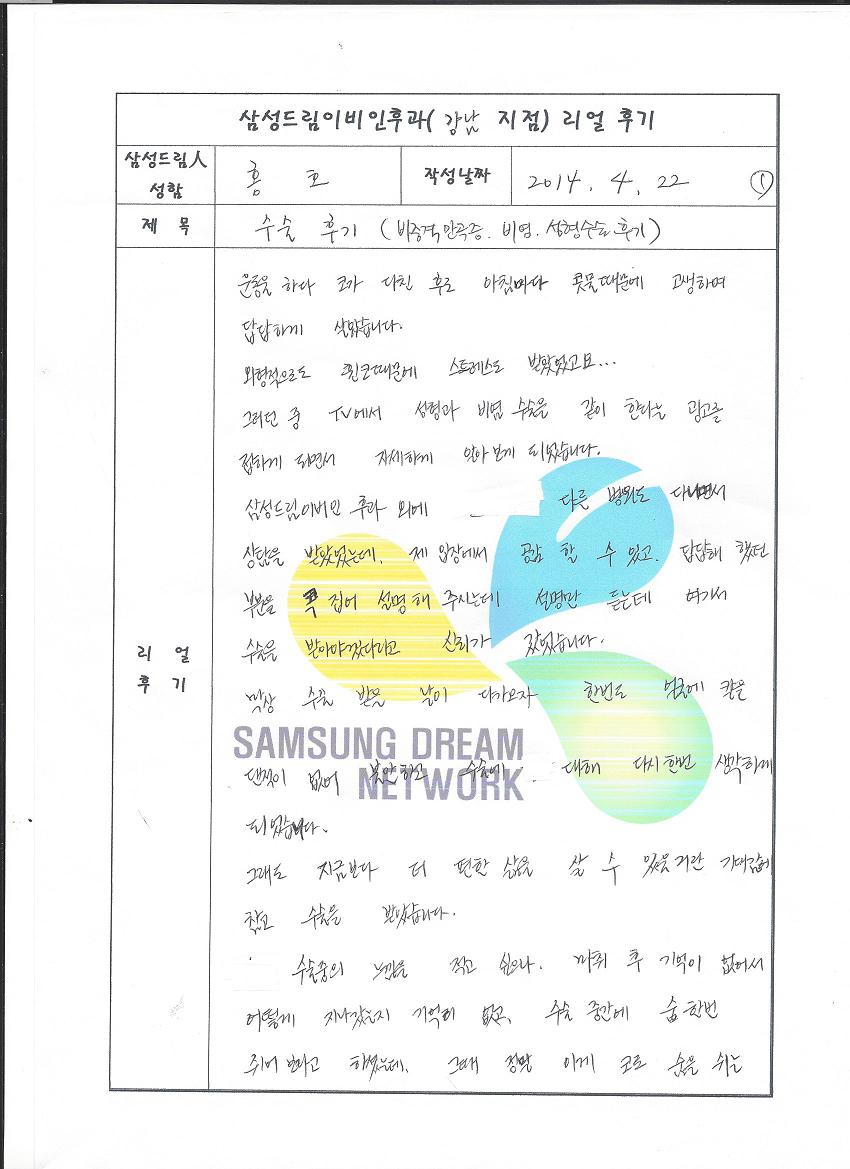 삼성드림이비인후과( 강남 지점) 리얼 후기
삼성드림人 성함
홍 호
작성날짜
2014. 4. 22
①
제 목
수술 후기 (비중격만곡증. 비염. 성형수술 후기)
리 얼 후 기
운동을 하다 코가 다친 후로 아침마다 콧물때문에 고생하며
답답하게 살았습니다.
외형적으로도 휜코때문에 스트레스도 받았었고요...
그러던 중 TV에서 성형과 비염 수술을 같이 한다는 광고를
접하게 되면서 자세하게 알아보게 되었습니다.
삼성드림이비인 후과 외에 다른 병원도 다니면서
상담을 받았었는데, 제 입장에서 공감 할 수 있고. 답답해 했던
부분을 콕 집어 설명해 주시는데 설명만 듣는데 여기서
수술을 받아야겠다라고 신뢰가 갔었습니다.
막상 수술 받을 날이 다가오자 한번도 얼굴에 칼을
SAMSUNG DREAM
댄적이 없어 불안하고 수술에 대해 다시한번 생각하게
NETWORK
되었습니다.
그래도 지금보다 더 편한 삶을 살 수 있을거란 기대감에
참고 수술을 받았습니다.
수술중의 느낌을 적고 싶으나. 마취 후 기억이 없어서
어떻게 지나갔는지 기억이 없고, 수술 중간에 숨한번
쉬어 보라고 하셨는데, 그때 정말 이게 코로 숨을 쉬는